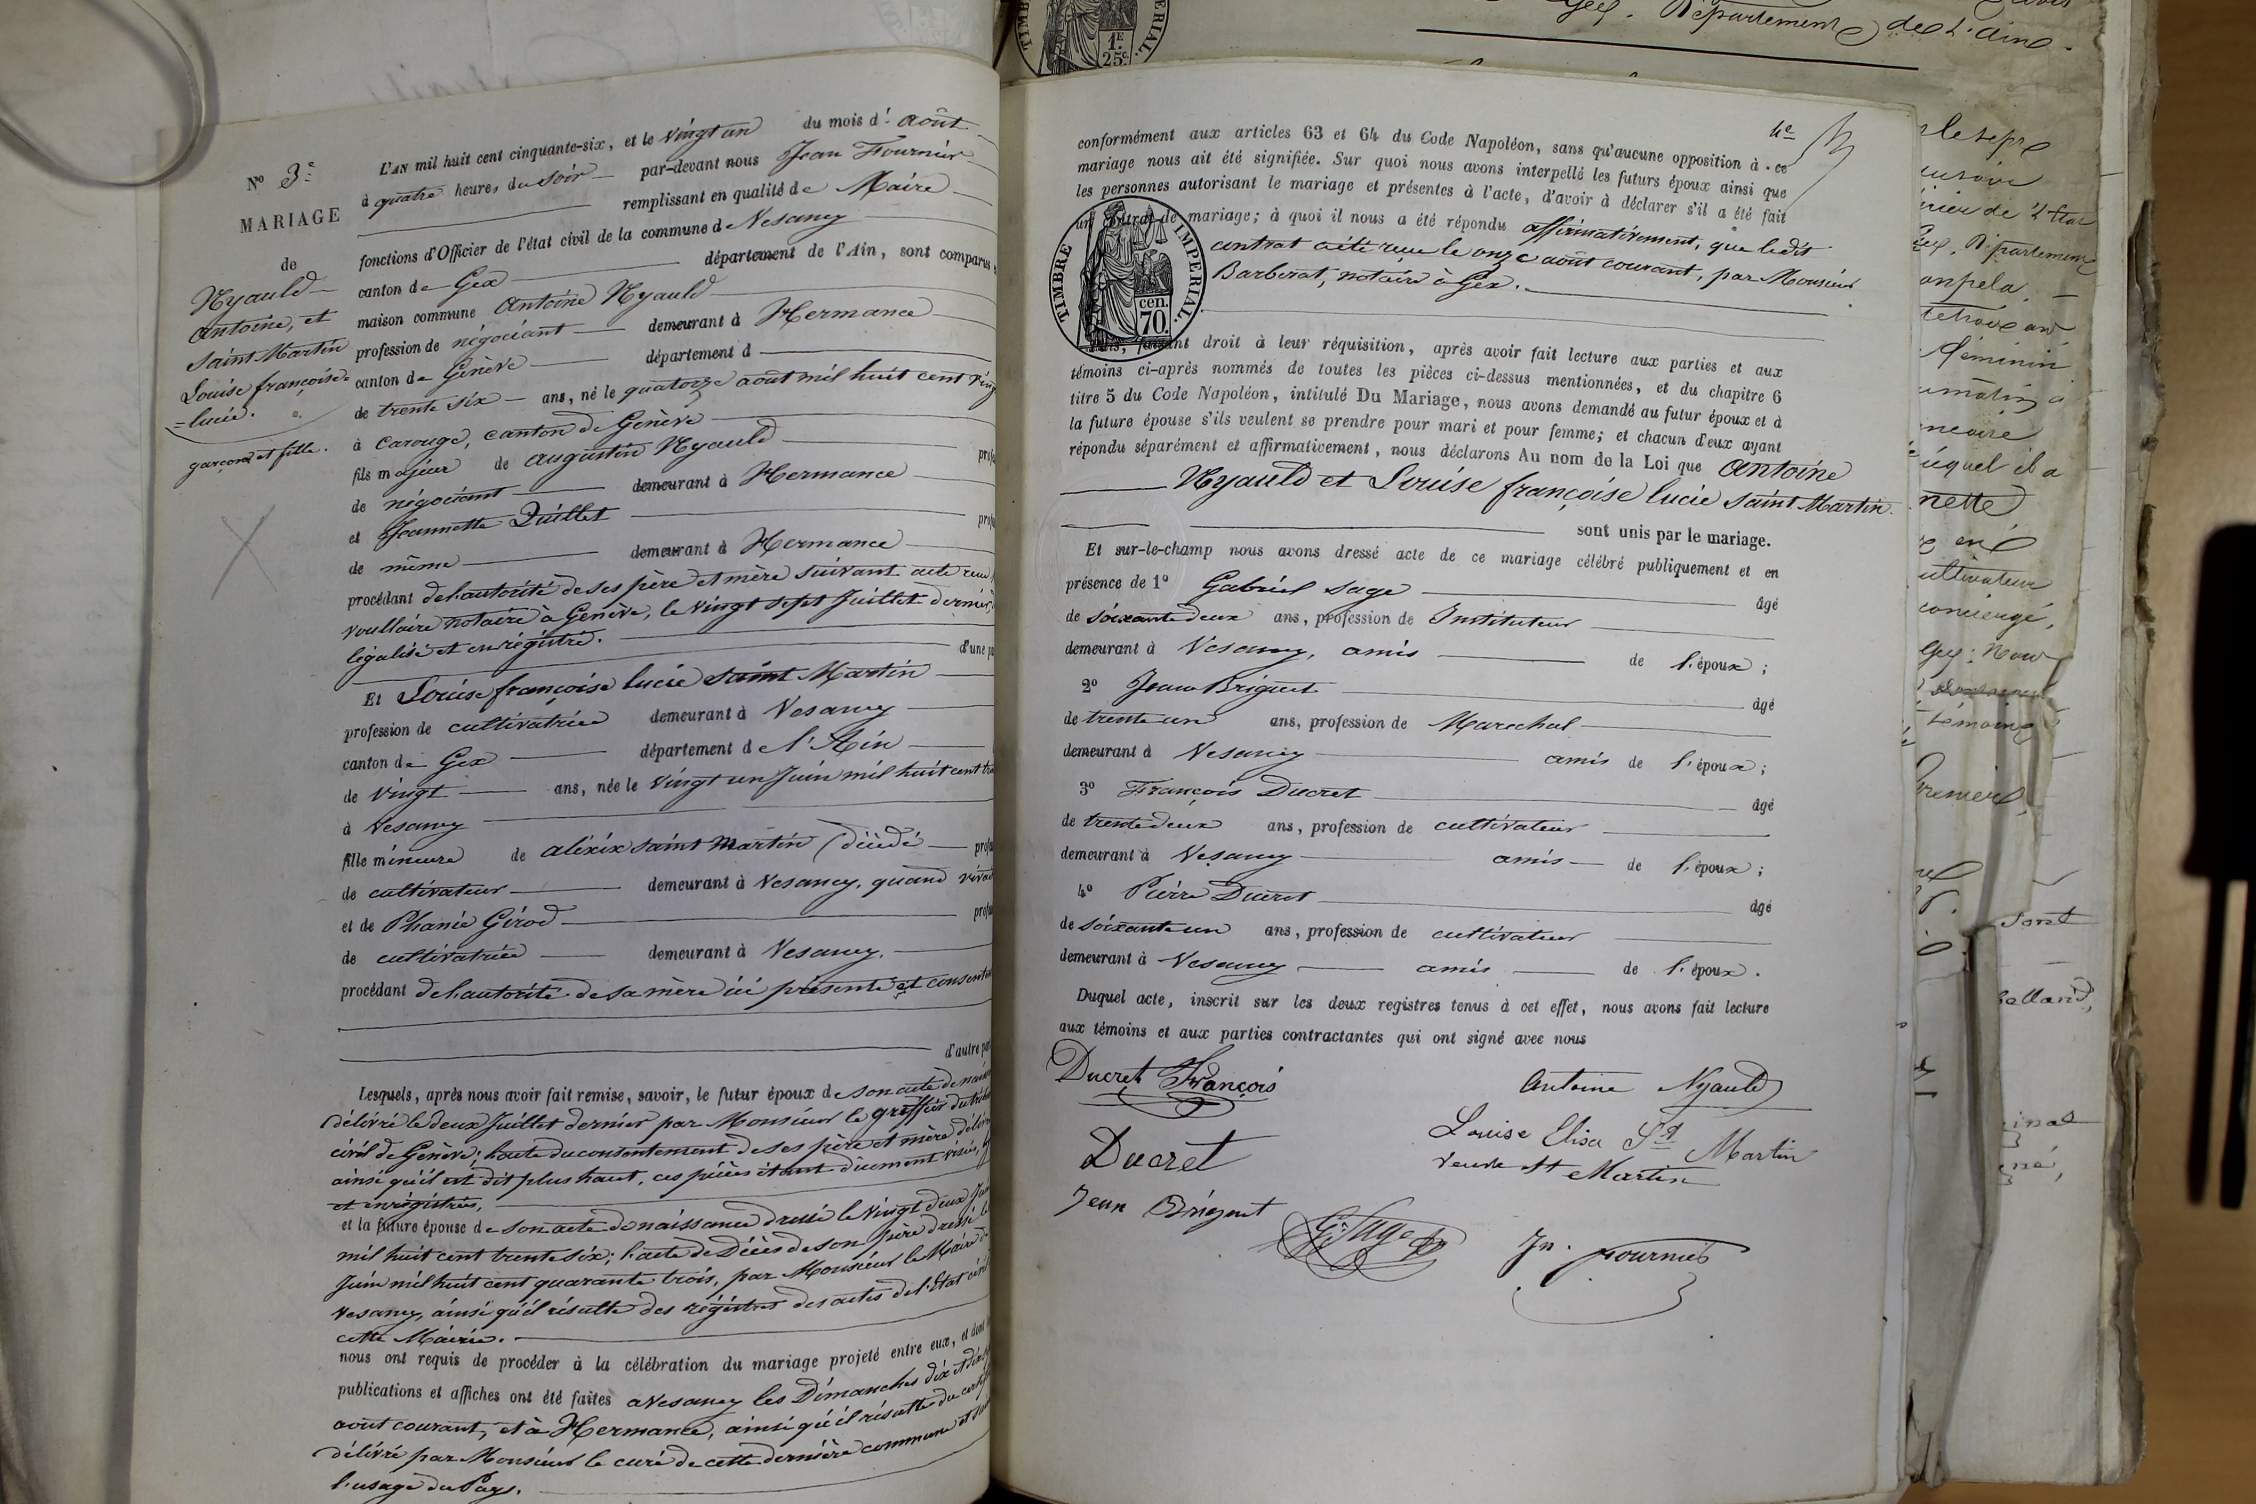 N° 3e
MARIAGE
de
Nyauld
Antoine, et
Saint Martin
Louise françoise=
=lucie.
garçon et fille.
L'AN mil huit cent cinquante-six, et le vingt un du mois d' août
à quatre heures du Soir par-devant nous Jean Fournier
remplissant en qualité de Maire
fonctions d'Officier de l'état civil de la commune de Vesancy
canton de Gex département de l'Ain, sont comparus
maison commune Antoine Nyauld
profession de négociant demeurant à Hermance
canton de Genève département d
de trente six ans, né le quatorze août mil huit cent vingt
à Carouge, canton de Genève
fils majeur de augustin Nyauld
de négociant demeurant à Hermance
et Jeannette Quillet
de même demeurant à Hermance
procédant de l'autorité de ses père et mère suivant acte reçu
notaire à Genève, le vingt sept Juillet dernier,
légalisé et enrégistré.
d'une
Et Louise françoise lucie saint Martin
profession de cultivatrice demeurant à Vesancy
canton de Gex département de l'Ain
de vingt ans, née le vingt un Juin mil huit cent
à Vesancy
fille mineure de alexix saint Martin (décédé
de cultivateur demeurant à Vesancy, quand
et de Phanie Girod
de cultivatrice demeurant à Vesancy.
procédant de l'autorité de sa mère ici présente et
d'autre
Lesquels, après nous avoir fait remise, savoir, le futur époux de son acte de
délivré le deux Juillet dernier par Monsieur le greffier du
civil de Genève; l'acte du consentement de ses père et mère
ainsi qu'il est dit plus haut, ces pièces étant duement visées,
et enrégistrées,
et la future épouse de son acte de naissance dressé le vingt deux
mil huit cent trente six; l'acte de Décès de son père dressé le
Juin mil huit cent quarante trois, par Monsieur le Maire de
Vesancy, ainsi qu'il résulte des régistres des actes de l'état civil
cette Mairie.
nous ont requis de procéder à la célébration du mariage projeté entre eux, et dont
publications et affiches ont été faites à Vesancy les Dimanches dix et
août courant, et à Hermance, ainsi qu'il résulte du
délivré par Monsieur le curé de cette dernière commune et
l'usage du Pays.
4e
conformément aux articles 63 et 64 du Code Napoléon, sans qu'aucune opposition à ce
mariage nous ait été signifiée. Sur quoi nous avons interpellé les futurs époux ainsi que
les personnes autorisant le mariage et présentes à l'acte, d'avoir à déclarer s'il a été fait
un contrat de mariage; à quoi il nous a été répondu affirmativement, que ledit
contrat a été reçu le onze août courant, par Monsieur
Barberat, notaire à Gex.
TIMBRE IMPERIAL.
cen.
70.
faisant droit à leur réquisition, après avoir fait lecture aux parties et aux
témoins ci-après nommés de toutes les pièces ci-dessus mentionnées, et du chapitre 6
titre 5 du Code Napoléon, intitulé Du Mariage, nous avons demandé au futur époux et à
la future épouse s'ils veulent se prendre pour mari et pour femme; et chacun d'eux ayant
répondu séparément et affirmativement, nous déclarons Au nom de la Loi que Antoine
Nyauld et Louise françoise lucie saint Martin.
sont unis par le mariage.
Et sur-le-champ nous avons dressé acte de ce mariage célébré publiquement et en
présence de 1° Gabriel Sage âgé
de soixante deux ans, profession de Instituteur
demeurant à Vesancy, amis de l'époux;
2° Jean Briguet âgé
de trente un ans, profession de Marechal
demeurant à Vesancy amis de l'époux;
3° François Ducret âgé
de trente deux ans, profession de cultivateur
demeurant à Vesancy amis de l'époux;
4° Pierre Ducret âgé
de soixante un ans, profession de cultivateur
demeurant à Vesancy amis de l'époux.
Duquel acte, inscrit sur les deux registres tenus à cet effet, nous avons fait lecture
aux témoins et aux parties contractantes qui ont signé avec nous
Ducret François Antoine Nyauld
Louise Elisa St Martin
Ducret veuve St Martin
Jean Briguet
G. Sage Jn. fournier
TIMBRE IMPERIAL.
1E
25c
Gex. Département de l'Ain.